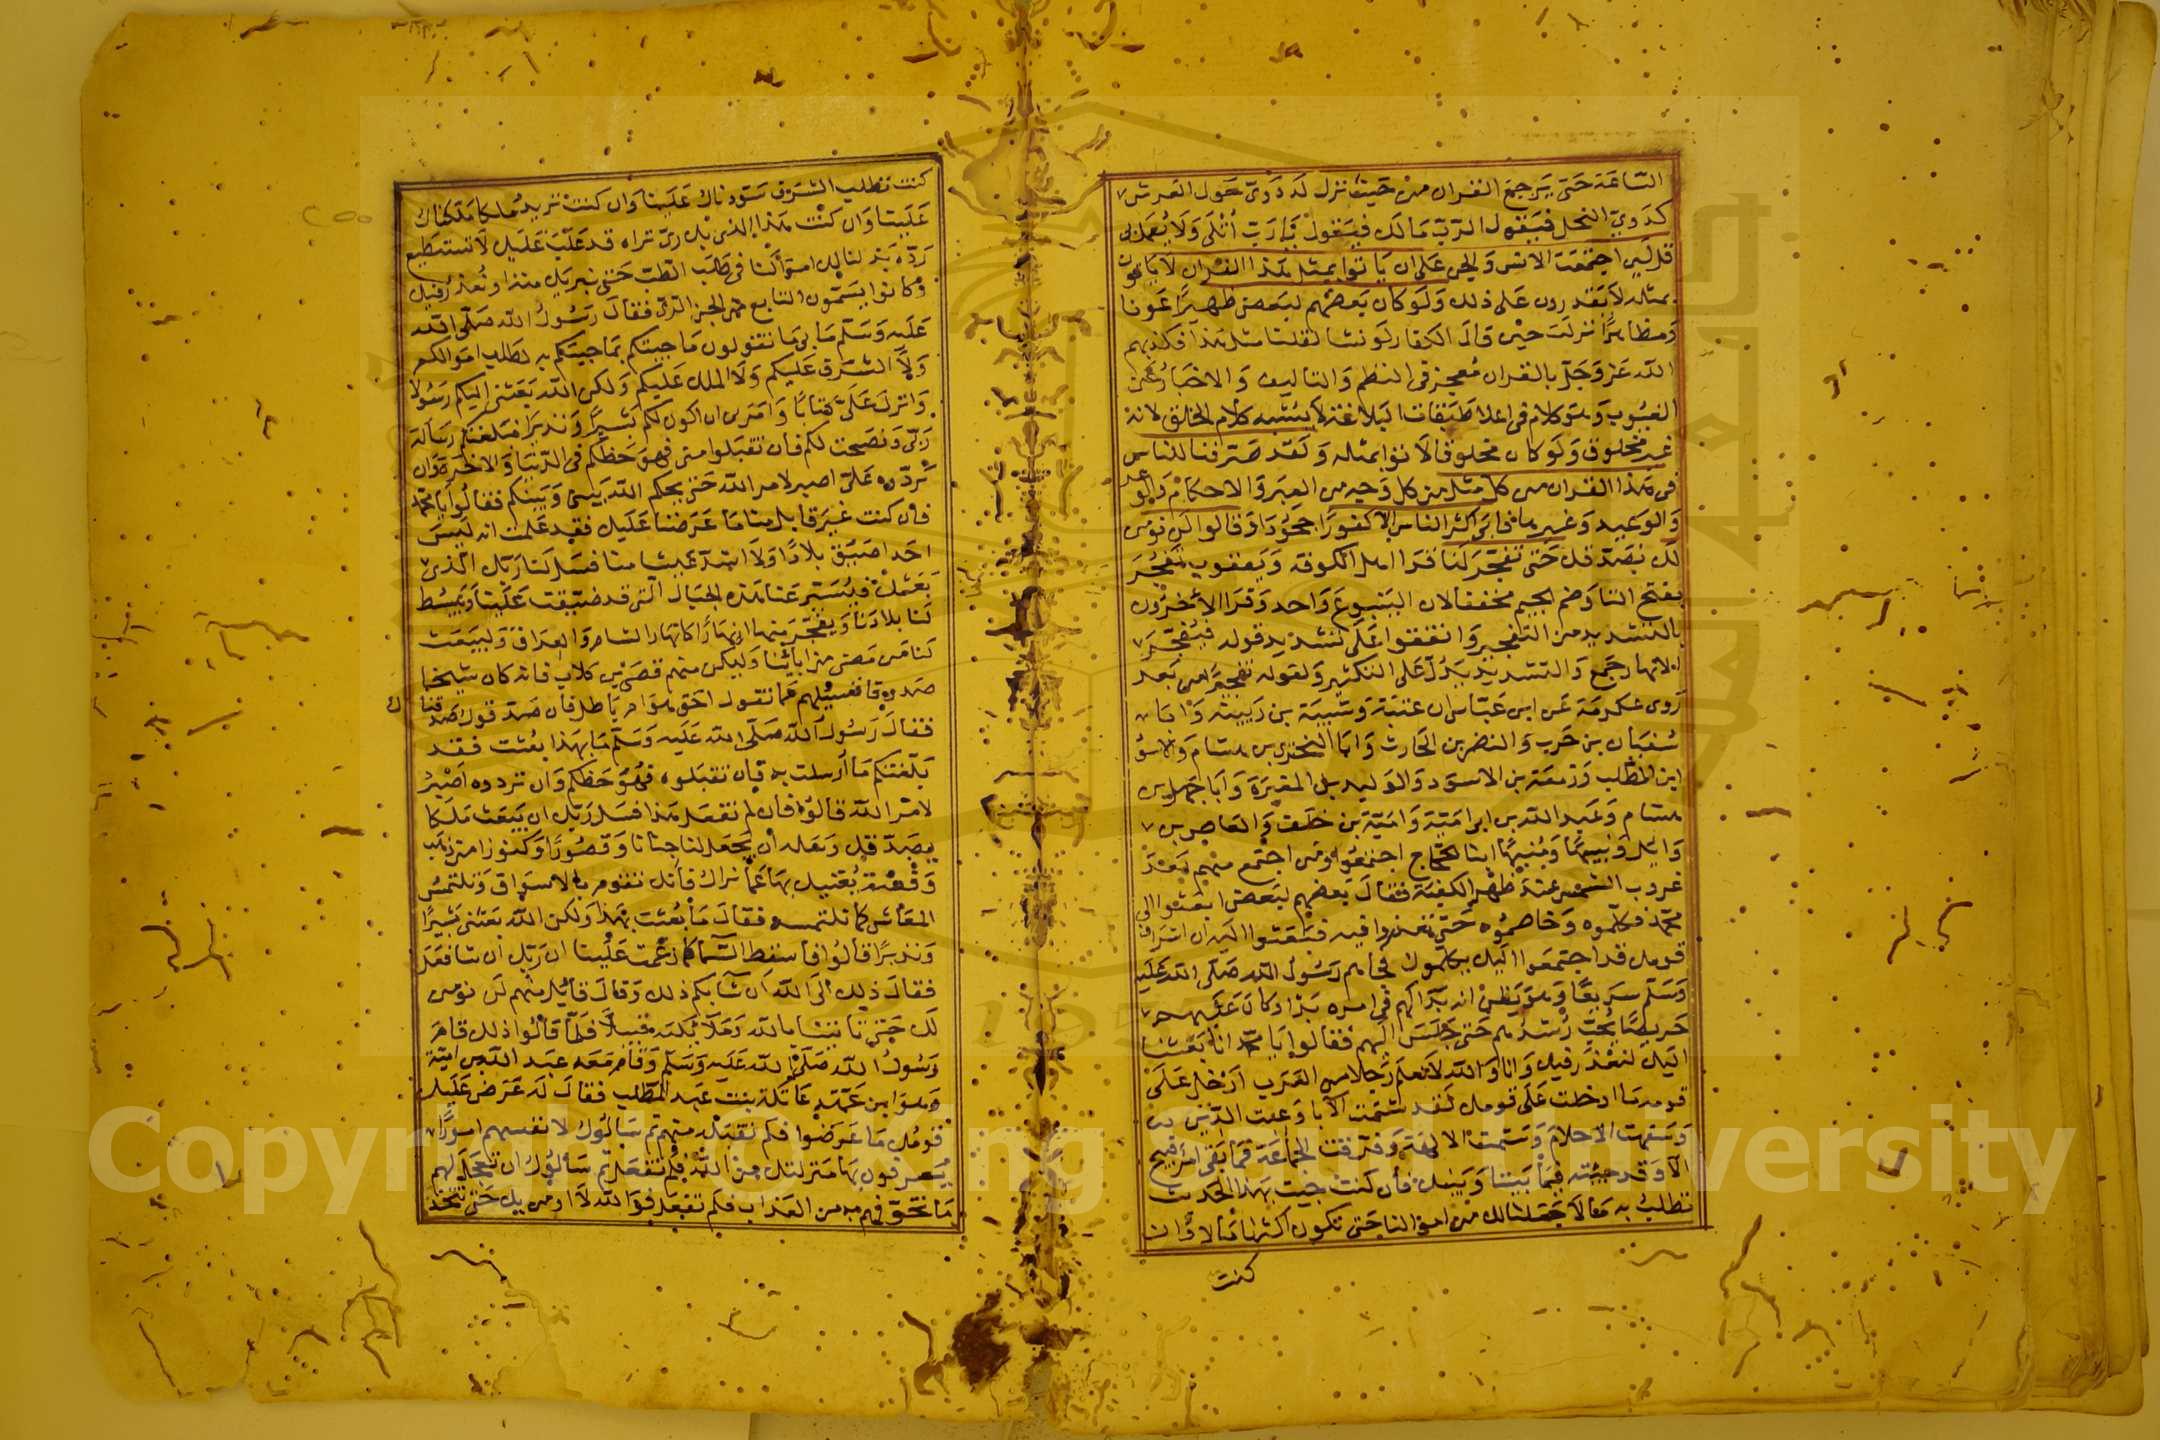 الساعة حتى يرجع القران من حيث نزل له دوي حول العرش
كدوي النحل فيقول الرب مالك فيقول يا رب اتلى ولا يعمل بى
قل لين اجتمعت الانس والجن على ان ياتوا بمثل هذا القران لا ياتون
بمثله لا يقدرون على ذلك ولو كان بعضهم لبعض ظهيرًا عونا
ومظاهرًا نزلت حين قال الكفار لو نشا لقلنا مثل هذا فكذبهم
الله عز وجل بالقران معجز فى النظم والتاليف والاخبار عن
الغيوب وهو كلام فى اعلا طبقات البلاغة لا يشبه كلام الخلق لانه
غير مخلوق ولو كان مخلوقا لاتوا بمثله ولقد صرفنا للناس
فى هذا القران من كل مثل من كل وجه من العبر والاحكام والوعد
والوعيد وغيرها فابى اكثر الناس الا كفورًا جحودا وقالوا لن نومن
لك نصدقك حتى تفجر لنا قرا اهل الكوفة ويعقوب تفجر
بفتح التا وضم الجيم مخففا لان الينبوع واحد وقرا الاخرون
بالتشديد من التفجير واتفقوا على تشديد قوله فتفجر
الانهار جمع والتشديد يدل على التكثير ولقوله تفجيرا من بعد
روى عكرمة عن ابن عباس ان عتبة وشيبة بن ربيعة وابا
سفيان بن حرب والنضر بن الحارث وابا البختري بن هشام والاسود
ابن المطلب وزمعة بن الاسود والوليد بن المغيرة وابا جهل بن
هشام وعبد الله بن ابي امية وامية بن خلف والعاص بن
وايل ونبيها ومنبها ابنا الحجاج اجتمعوا ومن اجتمع منهم بعد
غروب الشمس عند ظهر الكعبة فقال بعضهم لبعض ابعثوا الى
محمد فكلموه وخاصموه حتى تعذروا فيه فبعثوا اليه ان اشراف
قومك قد اجتمعوا اليك يكلموك فجاهم رسول الله صلى الله عليه
وسلم سريعًا وهو يظن انه بدا لهم فى امره بدا وكان عليهم
حريصًا يحب رشدهم حتى جلس اليهم فقالوا يا محمد انا بعثنا
اليك لنعذر فيك وانا والله لا نعلم رجلا من العرب ادخل على
قومه ما ادخلت على قومك لقد شتمت الابا وعبت الدين
وسفهت الاحلام وشتمت الالهة وفرقت الجماعة فما بقى امر قبيح
الا وقد جيته فيما بيننا وبينك فان كنت جيت بهذا الحديث
تطلب به مالا جعلنا لك من اموالنا حتى تكون اكثرنا مالا وان
كنت
كنت تطلب الشرف سودناك علينا وان كنت تريد ملكا ملكناك
علينا وان كنت هذا الذي بك رى تراه قد غلب عليك لا تستطيع
رده بذلنا لك اموالنا فى طلب الطب حتى نبريك منه او نعذر فيك
وكانوا يسمون التابع من الجن الرى فقال رسول الله صلى الله
عليه وسلم ما بى ما تقولون ما جيتكم بما جيتكم به لطلب اموالكم
ولا الشرف عليكم ولا الملك عليكم ولكن الله بعثنى اليكم رسولا
وانزل على كتابا وامرنى ان اكون لكم بشيرًا ونذيرا فبلغتكم رسالة
ربى ونصحت لكم فان تقبلوا منى فهو حظكم فى الدنيا والاخرة وان
تردوه على اصبر لامر الله حتى يحكم الله بينى وبينكم فقالوا يا محمد
فان كنت غير قابل منا ما عرضنا عليك فقد علمت انه ليس
احد اضيق بلادًا ولا اشد عيشا منا فسل لنا ربك الذى
بعثك فليسير عنا هذه الجبال التى قد ضيقت علينا ويبسط
لنا بلادنا ويفجر فيها انهارًا كانهار الشام والعراق وليبعث
لنا من مضى من ابائنا وليكن منهم قصى بن كلاب فانه كان شيخا
صدوقا فنسيلهم عما تقول احق هو ام باطل فان صدقوك صدقناك
فقال رسول الله صلى الله عليه وسلم ما بهذا بعثت فقد
بلغتكم ما ارسلت به فان تقبلوه فهو حظكم وان تردوه اصبر
لامر الله قالوا فان لم تفعل هذا فسل ربك ان يبعث ملكا
يصدقك وتسله ان يجعل لنا جنانا وقصورًا وكنوزا من ذهب
وفضة يغنيك بها عما نراك فانك تقوم بالاسواق وتلتمس
المعاش كما نلتمسه فقال ما بعثت بهذا ولكن الله بعثنى بشيرًا
ونذيرًا قالوا فاسقط السما كما زعمت علينا ان ربك ان شا فعل
فقال ذلك الى الله ان شا بكم ذلك وقال قائل منهم لن نومن
لك حتى تاتينا بالله والملائكة قبيلًا فلما قالوا ذلك قام
رسول الله صلى الله عليه وسلم وقام معه عبد الله بن امية
وهو ابن عمته عاتكة بنت عبد المطلب فقال له عرض عليك
قومك ما عرضوا فلم تقبله منهم ثم سالوك لانفسهم امورًا
يعرفون بها منزلتك من الله فلم تفعل ثم سالوك ان تعجل لهم
ما تخوفهم به من العذاب فلم تفعل فوالله لا اومن بك حتى تتخذ
Copyright © King Saud University
1957